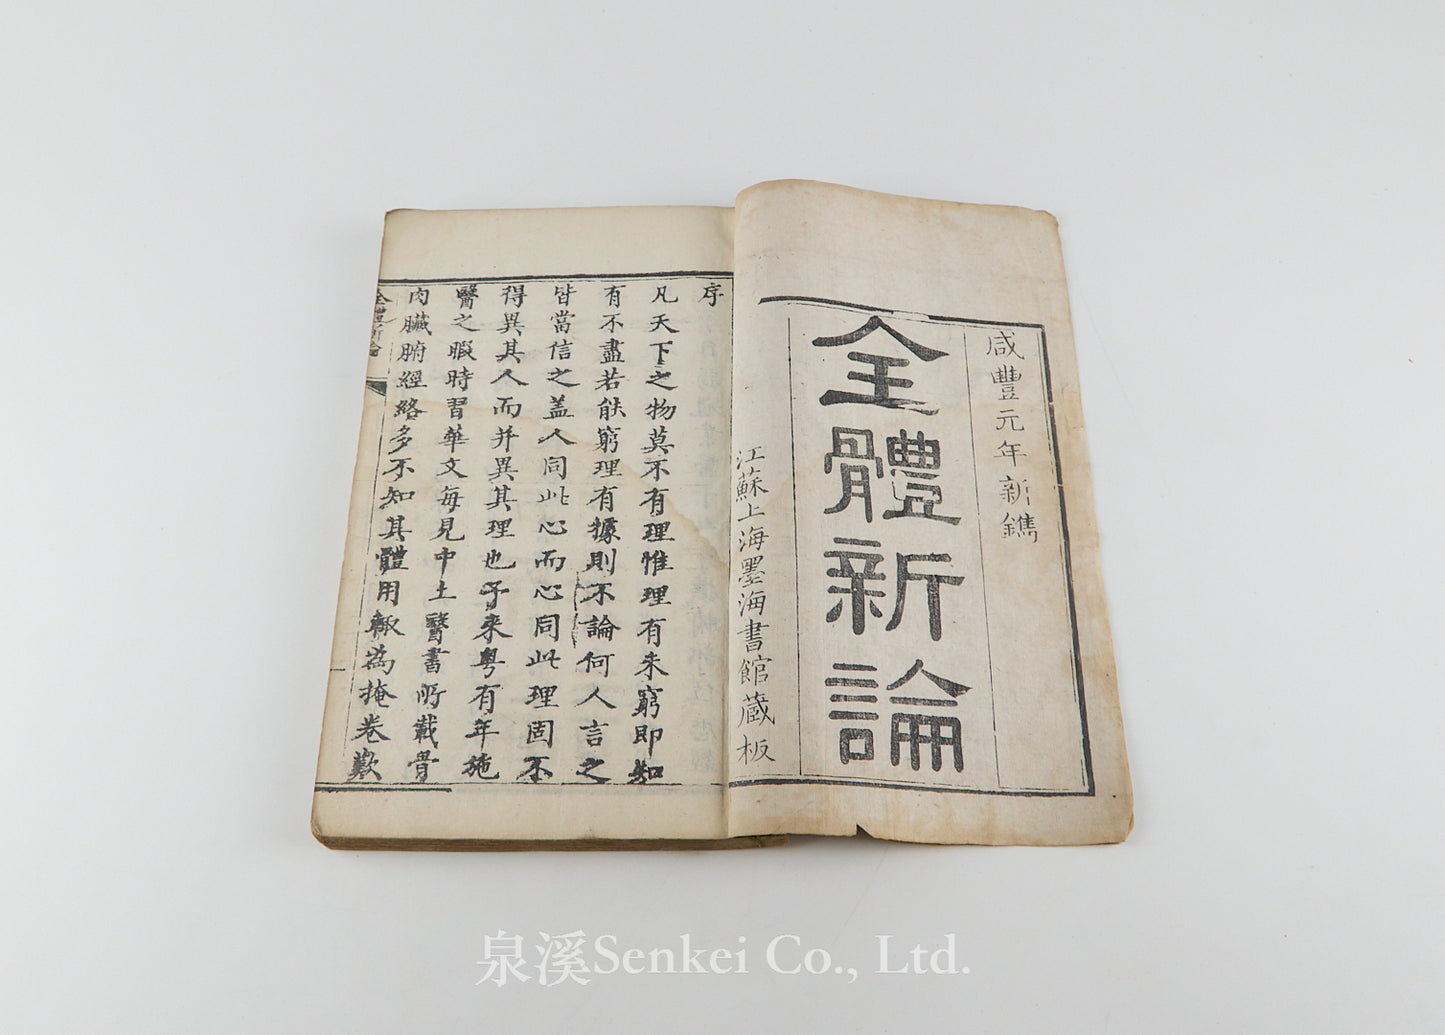 咸豐元年新鐫
全體新論
江蘇上海墨海書館藏板
序
凡天下之物莫不有理惟理有未窮即知
有不盡若能窮理有據則不論何人言之
皆當信之蓋人同此心而心同此理固不
得異其人而并異其理也予來粤有年施
醫之暇時習華文每見中土醫書所載骨
肉臟腑經絡多不知其體用輒為掩卷歎
全體新論
泉溪Senkei Co., Ltd.